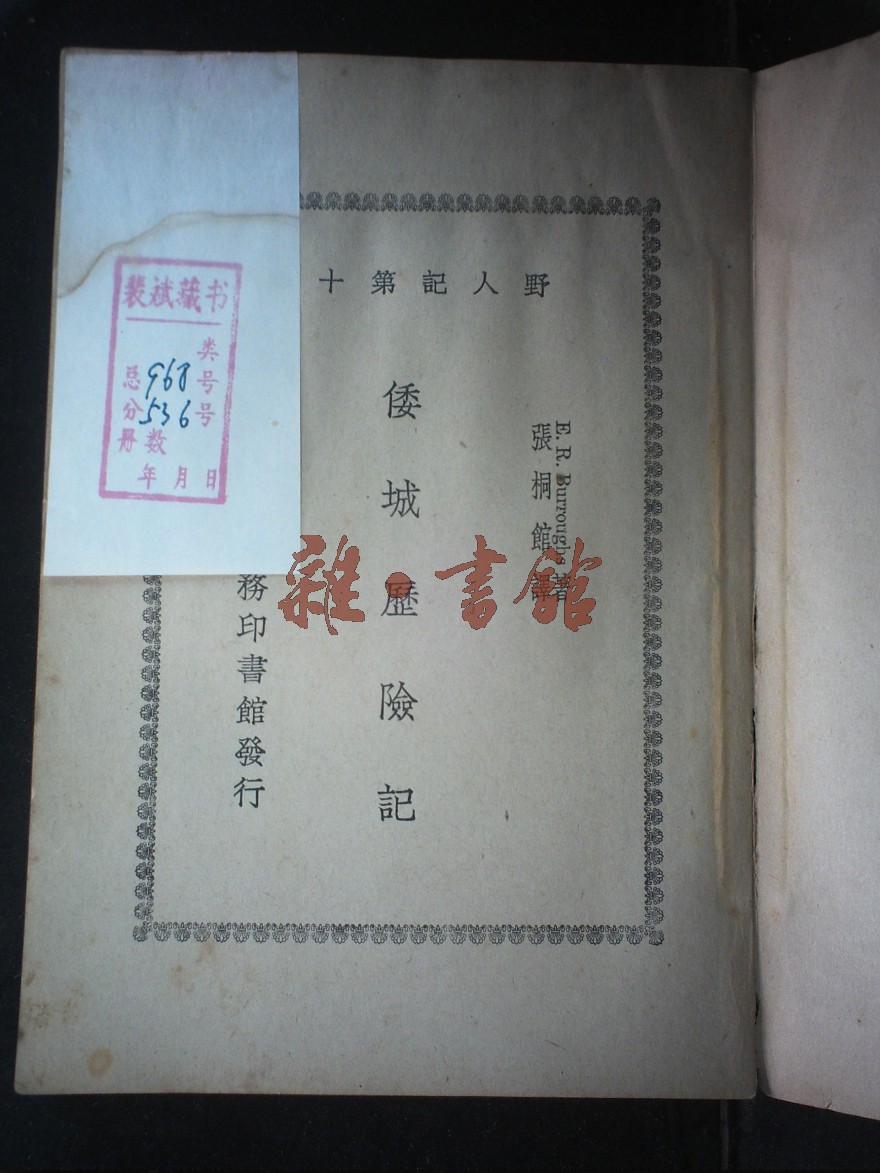 野人記第十
E. R. Burroughs 著
張桐館譯
倭城歷險記
務印書館發行
裴斌藏书
类
总968号
分536号
册数
年月日
雜·書館